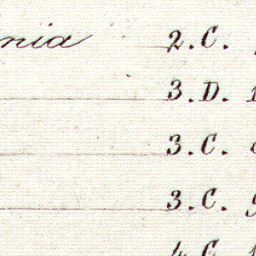 nia 2.C.
3.D. 1
3.C.
3.C. 9
4.C. 1